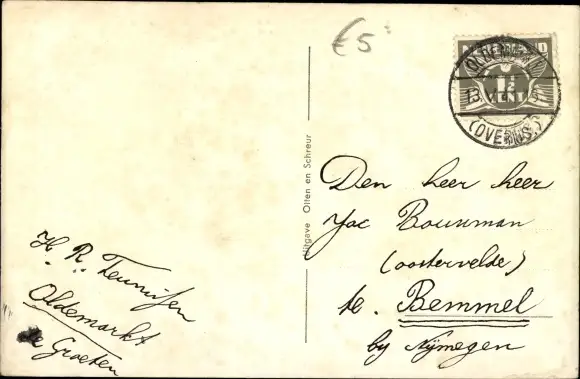 €5
(OVERIJS.)
CENT
Uitgave Olten en Schreur
Den heer heer
Jac Bouwman
(oostervelde)
te. Bemmel
by Nijmegen
H. R. Teunissen
Oldemarkt
de Groeten